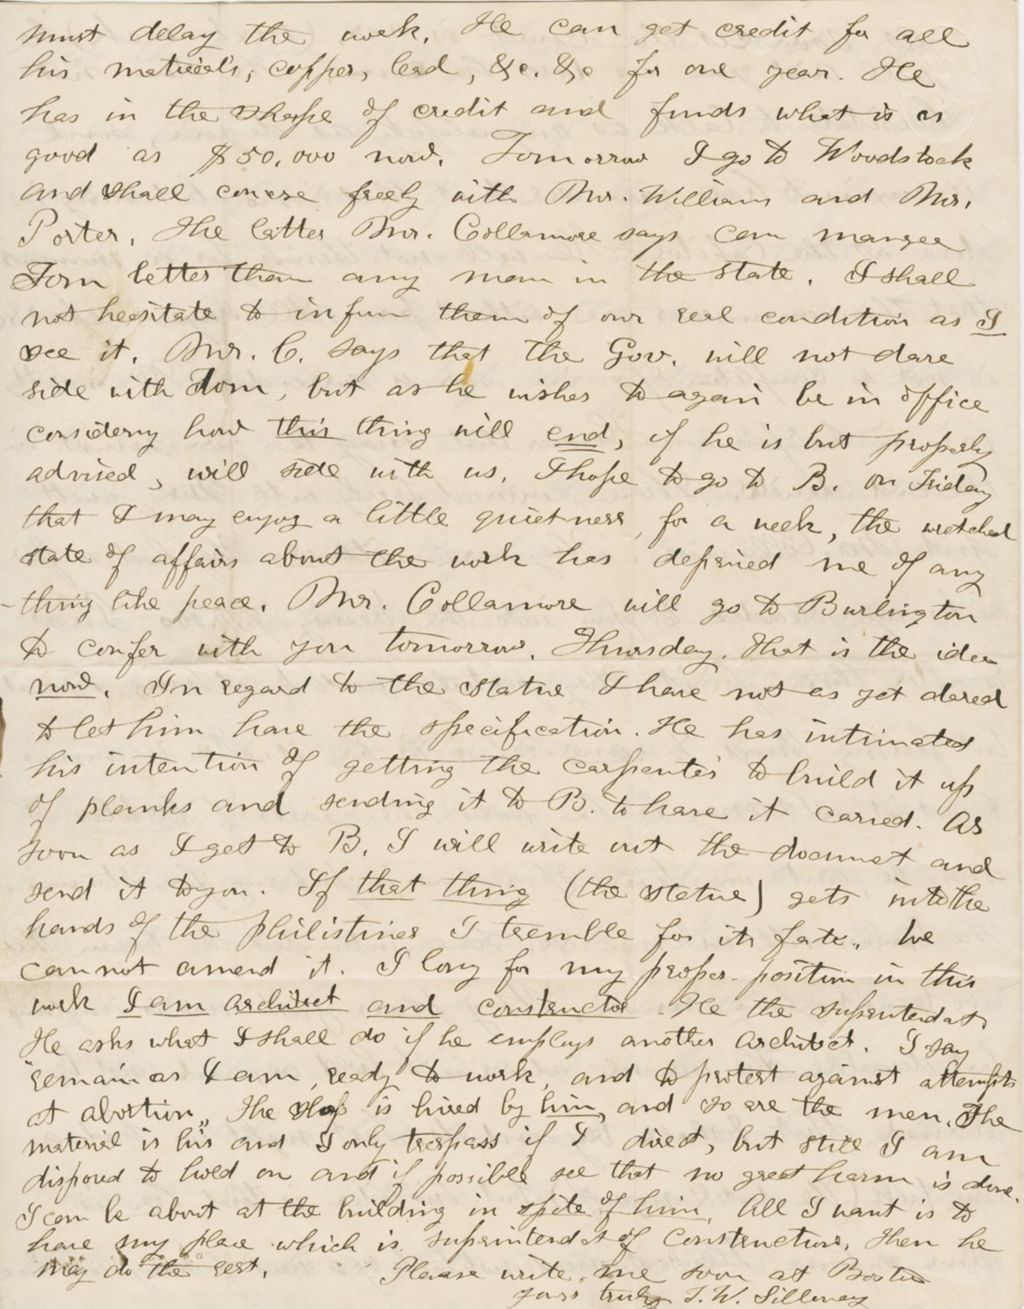 must delay the work. He can get credit for all
his materials, copper, lead, &c. &c for one year. He
has in the shape of credit and funds what is as
good as $50,000 now. Tomorrow I go to Woodstock
and shall converse freely with Mr. Williams and Mr.
Porter. The latter Mr. Collamore says can manage
Tom better than any man in the state. I shall
not hesitate to inform them of our real condition as I
see it. Mr. C. says that the Gov. will not dare
side with Tom, but as he wishes to again be in office
considering how this thing will end, if he is but properly
advised, will side with us. I hope to go to B. on Friday
that I may enjoy a little quietness, for a week, the wretched
state of affairs about the work has deprived me of any
-thing like peace. Mr. Collamore will go to Burlington
to confer with you tomorrow, Thursday. That is the idea
now. In regard to the statue I have not as yet dared
to let him have the specification. He has intimated
his intention of getting the carpenters to build it up
of planks and sending it to B. to have it carved. As
soon as I get to B. I will write out the document and
send it to you. If that thing (the statue) gets into the
hands of the philistines I tremble for its fate. We
cannot amend it. I long for my proper position in this
work I am architect and constructor. He the superintendent
He asks what I shall do if he employs another Architect. I say
"remain as I am, ready to work, and to protest against attempts
at abortion" The shop is hired by him, and so are the men. The
material is his and I only trespass if I direct, but still I am
disposed to hold on and if possible see that no great harm is done.
I can be about at the building in spite of him. All I want is to
have my place which is superintendent of Construction, then he
may do the rest. Please write me soon at Boston
Yours truly T. W. Silloway